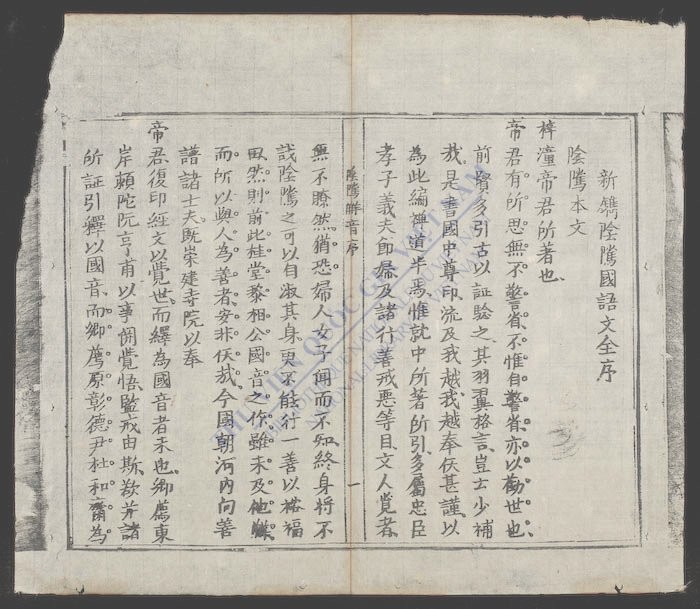 新鐫陰騭國語文全序
陰騭本文
梓潼帝君所著也
帝君有所思無不警省不惟自警省亦以勸世也
前賢多引古以証騐之其羽翼格言豈士少補
哉是書國中尊印流及我越我越奉伏甚謹以
為此編禆道半焉惟就中所著所引多屬忠臣
孝子義夫節婦及諸行善戒惡等目文人覧者
陰騭觧音序
一
無不瞭然猶恐婦人女子聞而不知終身將不
哉陰騭之可以自淑其身更不能行一善以格福
田然則前此桂堂黎相公國音之作雖未及他
而所以與人為善者安非伏哉今國朝河內向善
譜諸士夫既崇建寺院以奉
帝君復印經文以覺世而繹為國音者未也鄉薦東
岸賴陀阮亨甫以事開覺悟監戒由斯欲並諸
所証引繹以國音而鄉薦原彰德尹杜和齋為
THƯ VIỆN QUỐC GIA VIỆT NAM
NATIONAL LIBRARY OF VIETNAM